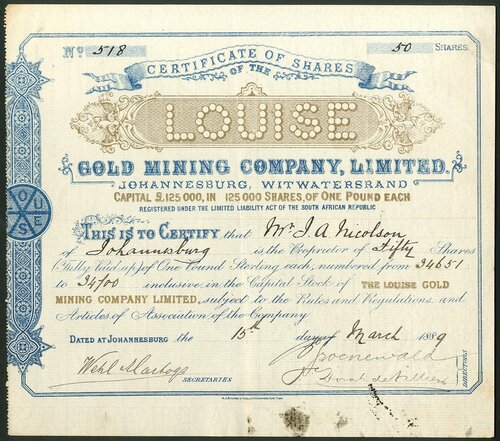 No. 518 50 SHARES
CERTIFICATE OF SHARES
OF THE
LOUISE
GOLD MINING COMPANY, LIMITED.
JOHANNESBURG, WITWATERSRAND
CAPITAL £125000, IN 125000 SHARES, OF ONE POUND EACH
REGISTERED UNDER THE LIMITED LIABILITY ACT OF THE SOUTH AFRICAN REPUBLIC
THIS IS TO CERTIFY that Mr. J. A. Nicolson
of Johannesburg is the Proprietor of Fifty Shares
(Fully paid up) of One Pound Sterling each, numbered from 34651
to 34700 inclusive in the Capital Stock of THE LOUISE GOLD
MINING COMPANY LIMITED, subject to the Rules and Regulations and
Articles of Association of the Company.
DATED AT JOHANNESBURG the 15th day of March 1889
SECRETARIES
DIRECTORS